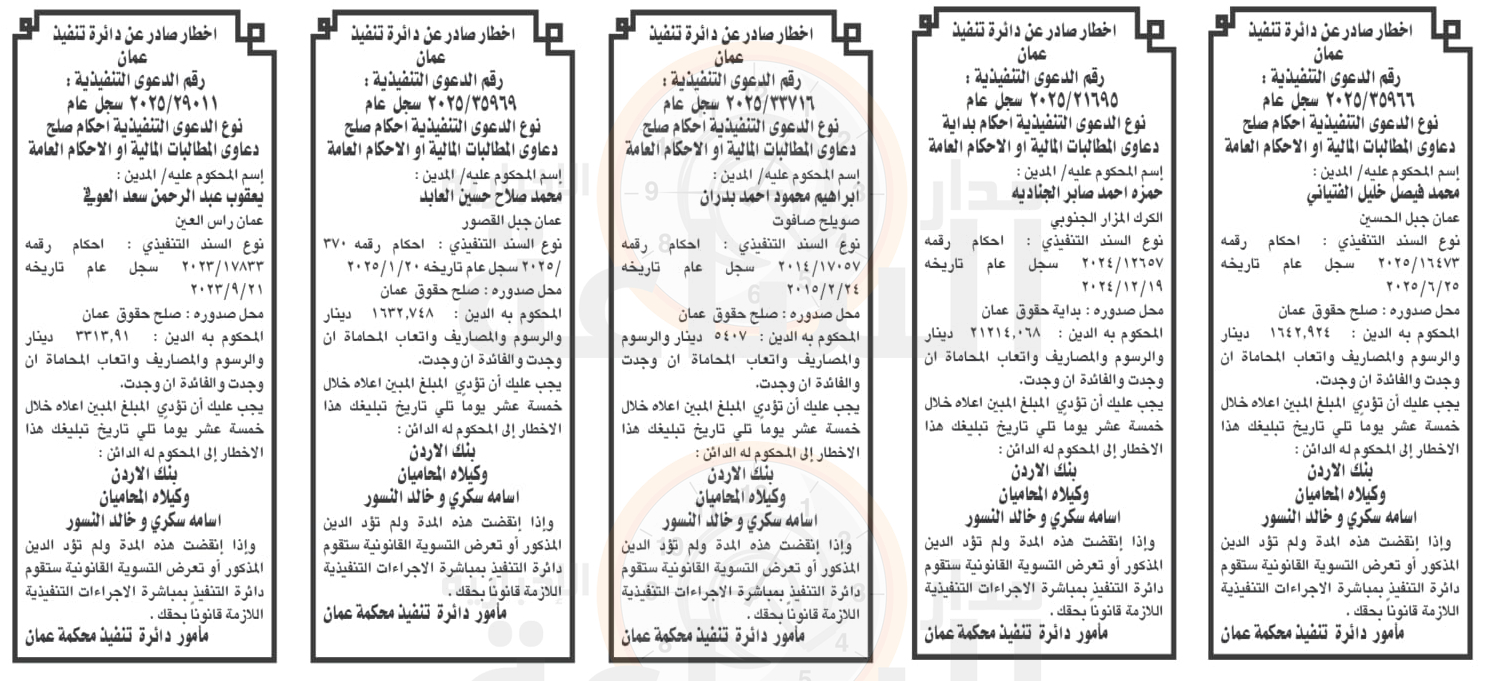 اخطار صادر عن دائرة تنفيذ
عمان
رقم الدعوى التنفيذية :
٢٠٢٥/٣٥٩٦٦ سجل عام
نوع الدعوى التنفيذية احكام صلح
دعاوى المطالبات المالية او الاحكام العامة
إسم المحكوم عليه/ المدين :
محمد فيصل خليل الفتياني
عمان جبل الحسين
نوع السند التنفيذي : احكام رقمه
٢٠٢٥/١٦٤٧٣ سجل عام تاريخه
٢٠٢٥/٦/٢٥
محل صدوره : صلح حقوق عمان
المحكوم به الدين : ١٦٤٢,٩٢٤ دينار
والرسوم والمصاريف واتعاب المحاماة ان
وجدت والفائدة ان وجدت.
يجب عليك أن تؤدي المبلغ المبين اعلاه خلال
خمسة عشر يوما تلي تاريخ تبليغك هذا
الاخطار إلى المحكوم له الدائن :
بنك الاردن
وكيلاه المحاميان
اسامه سكري و خالد النسور
وإذا إنقضت هذه المدة ولم تؤد الدين
المذكور أو تعرض التسوية القانونية ستقوم
دائرة التنفيذ بمباشرة الاجراءات التنفيذية
اللازمة قانوناً بحقك .
مأمور دائرة تنفيذ محكمة عمان
اخطار صادر عن دائرة تنفيذ
عمان
رقم الدعوى التنفيذية :
٢٠٢٥/٢١٦٩٥ سجل عام
نوع الدعوى التنفيذية احكام بداية
دعاوى المطالبات المالية او الاحكام العامة
إسم المحكوم عليه/ المدين :
حمزه احمد صابر الجناديه
الكرك المزار الجنوبي
نوع السند التنفيذي : احكام رقمه
٢٠٢٤/١٢٦٥٧ سجل عام تاريخه
٢٠٢٤/١٢/١٩
محل صدوره : بداية حقوق عمان
المحكوم به الدين : ٢١٢١٤,٠٦٨ دينار
والرسوم والمصاريف واتعاب المحاماة ان
وجدت والفائدة ان وجدت.
يجب عليك أن تؤدي المبلغ المبين اعلاه خلال
خمسة عشر يوما تلي تاريخ تبليغك هذا
الاخطار إلى المحكوم له الدائن :
بنك الاردن
وكيلاه المحاميان
اسامه سكري و خالد النسور
وإذا إنقضت هذه المدة ولم تؤد الدين
المذكور أو تعرض التسوية القانونية ستقوم
دائرة التنفيذ بمباشرة الاجراءات التنفيذية
اللازمة قانوناً بحقك .
مأمور دائرة تنفيذ محكمة عمان
اخطار صادر عن دائرة تنفيذ
عمان
رقم الدعوى التنفيذية :
٢٠٢٥/٣٣٧١٦ سجل عام
نوع الدعوى التنفيذية احكام صلح
دعاوى المطالبات المالية او الاحكام العامة
إسم المحكوم عليه/ المدين :
ابراهيم محمود احمد بدران
صويلح صافوت
نوع السند التنفيذي : احكام رقمه
٢٠١٤/١٧٠٥٧ سجل عام تاريخه
٢٠١٥/٢/٢٤
محل صدوره : صلح حقوق عمان
المحكوم به الدين : ٥٤٠٧ دينار والرسوم
والمصاريف واتعاب المحاماة ان وجدت
والفائدة ان وجدت.
يجب عليك أن تؤدي المبلغ المبين اعلاه خلال
خمسة عشر يوما تلي تاريخ تبليغك هذا
الاخطار إلى المحكوم له الدائن :
بنك الاردن
وكيلاه المحاميان
اسامه سكري و خالد النسور
وإذا إنقضت هذه المدة ولم تؤد الدين
المذكور أو تعرض التسوية القانونية ستقوم
دائرة التنفيذ بمباشرة الاجراءات التنفيذية
اللازمة قانوناً بحقك .
مأمور دائرة تنفيذ محكمة عمان
اخطار صادر عن دائرة تنفيذ
عمان
رقم الدعوى التنفيذية :
٢٠٢٥/٣٥٩٦٩ سجل عام
نوع الدعوى التنفيذية احكام صلح
دعاوى المطالبات المالية او الاحكام العامة
إسم المحكوم عليه/ المدين :
محمد صلاح حسين العابد
عمان جبل القصور
نوع السند التنفيذي : احكام رقمه ٣٧٠
/٢٠٢٥ سجل عام تاريخه ٢٠٢٥/١/٢٠
محل صدوره : صلح حقوق عمان
المحكوم به الدين : ١٦٣٢,٧٤٨ دينار
والرسوم والمصاريف واتعاب المحاماة ان
وجدت والفائدة ان وجدت.
يجب عليك أن تؤدي المبلغ المبين اعلاه خلال
خمسة عشر يوما تلي تاريخ تبليغك هذا
الاخطار إلى المحكوم له الدائن :
بنك الاردن
وكيلاه المحاميان
اسامه سكري و خالد النسور
وإذا إنقضت هذه المدة ولم تؤد الدين
المذكور أو تعرض التسوية القانونية ستقوم
دائرة التنفيذ بمباشرة الاجراءات التنفيذية
اللازمة قانوناً بحقك .
مأمور دائرة تنفيذ محكمة عمان
اخطار صادر عن دائرة تنفيذ
عمان
رقم الدعوى التنفيذية :
٢٠٢٥/٢٩٠١١ سجل عام
نوع الدعوى التنفيذية احكام صلح
دعاوى المطالبات المالية او الاحكام العامة
إسم المحكوم عليه/ المدين :
يعقوب عبد الرحمن سعد العوفي
عمان راس العين
نوع السند التنفيذي : احكام رقمه
٢٠٢٣/١٧٨٣٣ سجل عام تاريخه
٢٠٢٣/٩/٢١
محل صدوره : صلح حقوق عمان
المحكوم به الدين : ٣٣١٣,٩١ دينار
والرسوم والمصاريف واتعاب المحاماة ان
وجدت والفائدة ان وجدت.
يجب عليك أن تؤدي المبلغ المبين اعلاه خلال
خمسة عشر يوما تلي تاريخ تبليغك هذا
الاخطار إلى المحكوم له الدائن :
بنك الاردن
وكيلاه المحاميان
اسامه سكري و خالد النسور
وإذا إنقضت هذه المدة ولم تؤد الدين
المذكور أو تعرض التسوية القانونية ستقوم
دائرة التنفيذ بمباشرة الاجراءات التنفيذية
اللازمة قانوناً بحقك .
مأمور دائرة تنفيذ محكمة عمان